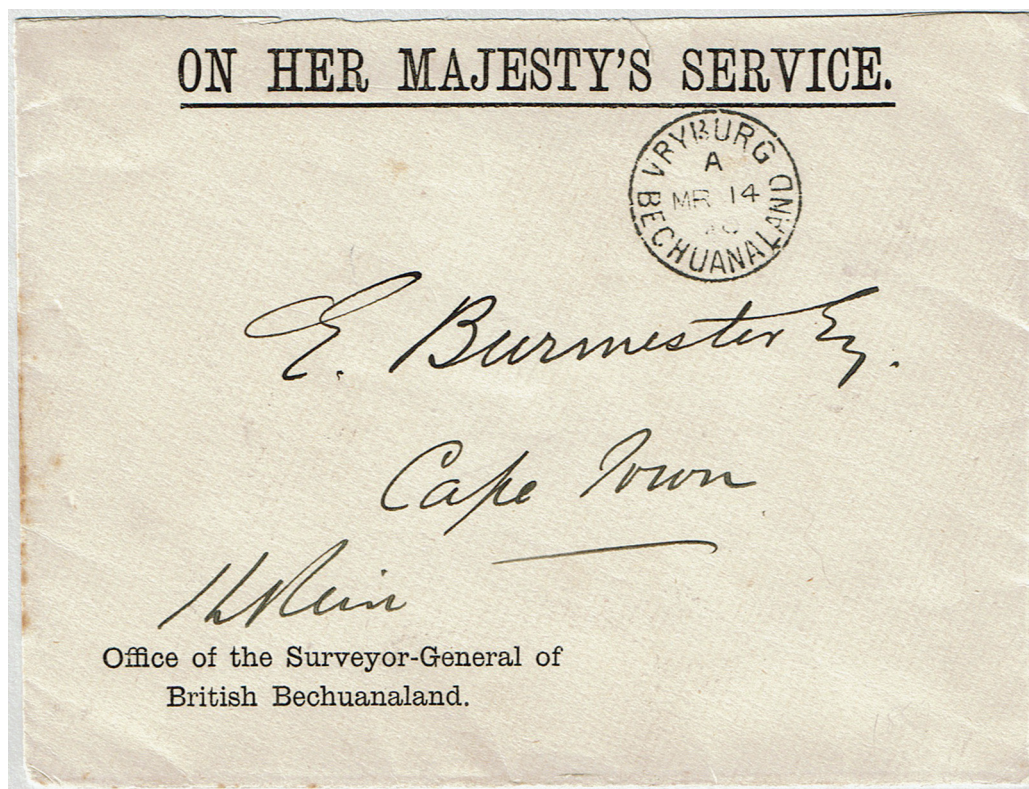 ON HER MAJESTY'S SERVICE.
VRYBURG
A
MR 14
BECHUANALAND
E. Burmester Esq.
Cape Town
Office of the Surveyor-General of
British Bechuanaland.